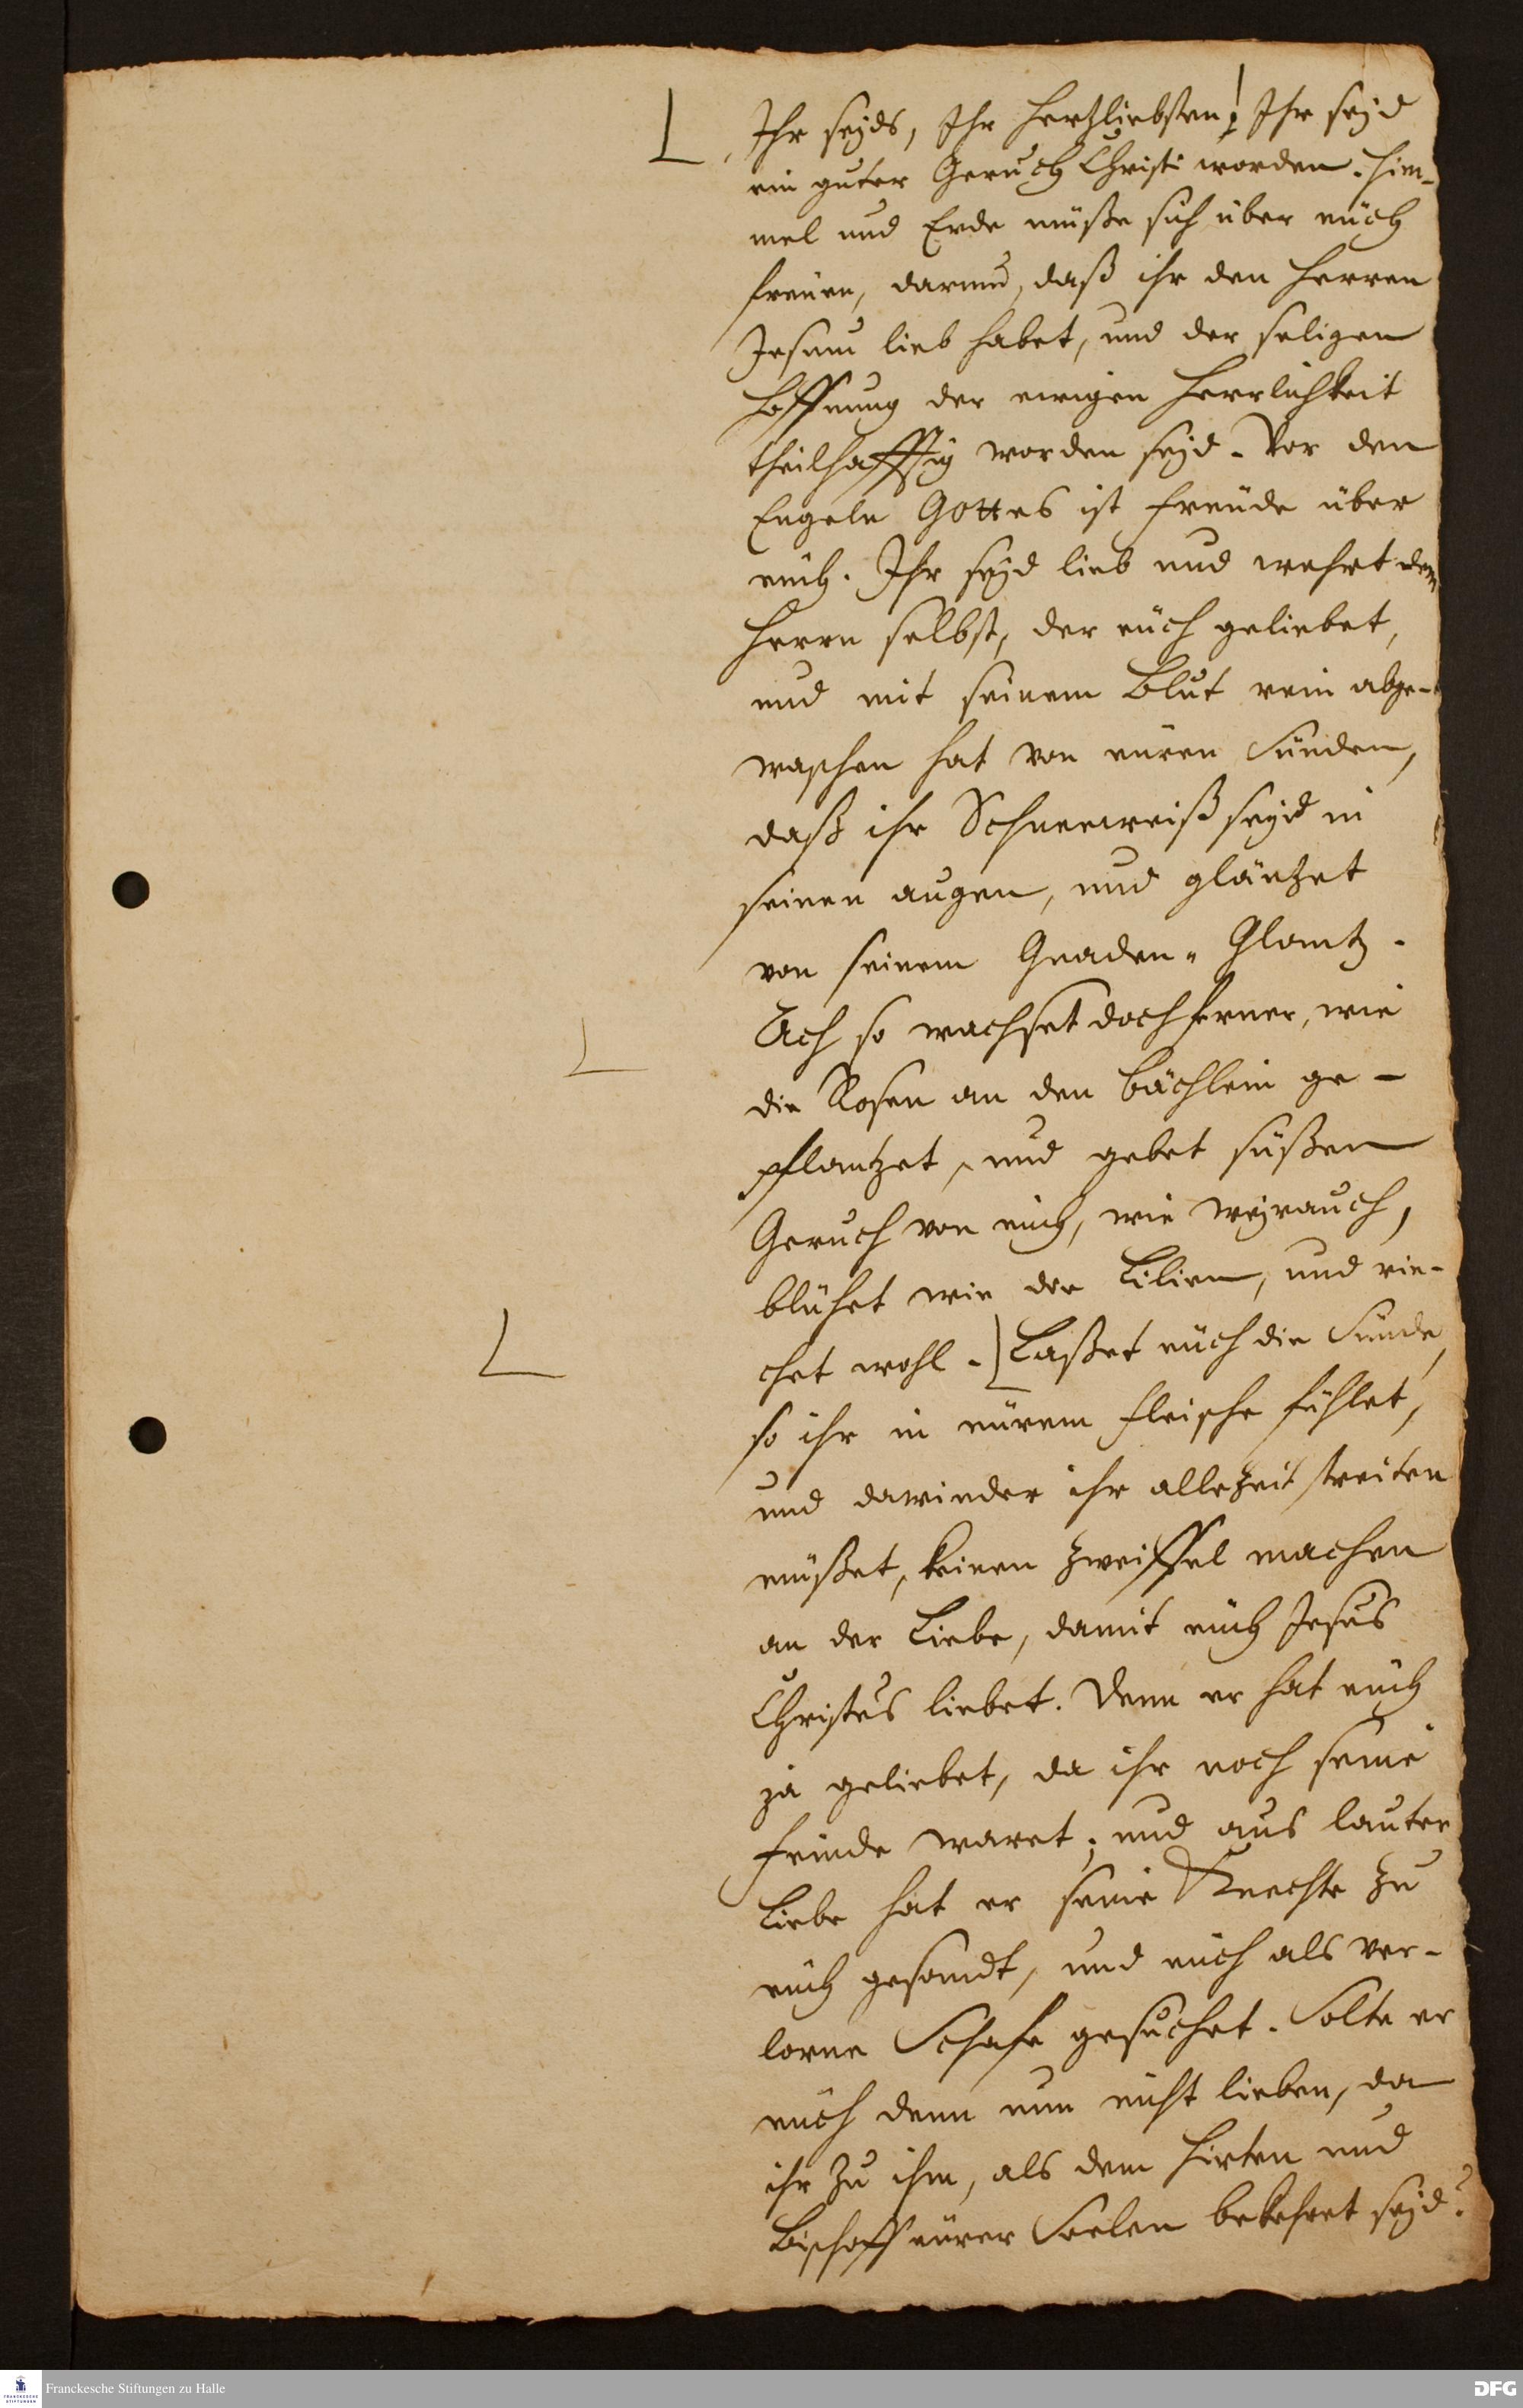 Ihr seyds, Ihr Hertzliebsten! Ihr seyd
ein guter Geruch Christi worden. Him-
mel und Erde müße sich über eüch
freüen, darum, daß ihr den Herren
Jesum lieb habet, und der seligen
Hoffnung der ewigen Herrlichkeit
theilhafftig worden seyd. Vor den
Engeln Gottes ist freüde über
eüch. Ihr seyd lieb und wehrt dem
Herrn selbst, der eüch geliebet,
und mit seinem Blut rein abge-
waschen hat von eüren Sünden,
daß ihr Schneeweiß seyd in
seinen augen, und gläntzet
von seinem Gnaden-Glantz.
Ach so wachset doch ferner, wie
die Rosen an den bächlein ge-
pflantzet, und gebet süßen
Geruch von eüch, wie weyrauch,
blühet wie die Lilien, und rie-
chet wohl. Laßet eüch die Sünde,
so ihr in eürem fleische fühlet,
und dawieder ihr allezeit streiten
müßet, keinen zweiffel machen
an der Liebe, damit eüch Jesus
Christus liebet. Denn er hat eüch
ja geliebet, da ihr noch seine
feinde waret; und aus lauter
Liebe hat er seine Knechte zu
eüch gesandt, und eüch als ver-
lorne Schafe gesuchet. Solte er
eüch denn nun nicht lieben, da
ihr zu ihm, als dem Hirten und
Bischoff eürer Seelen bekehret seyd?
FRANCKESCHE
STIFTUNGEN
Franckesche Stiftungen zu Halle
DFG